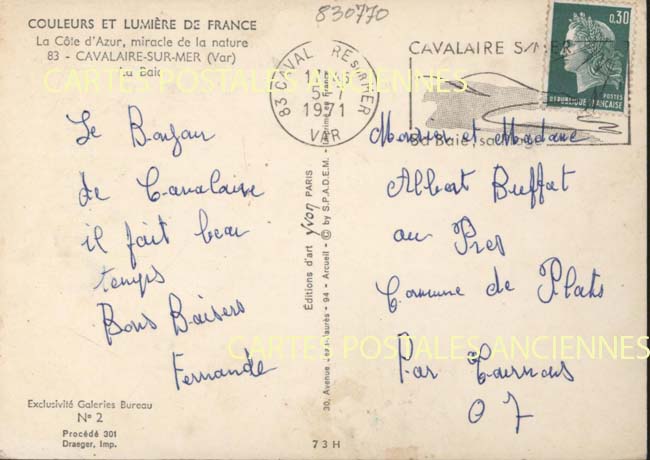 830770
COULEURS ET LUMIÈRE DE FRANCE
La Côte d'Azur, miracle de la nature
83 - CAVALAIRE-SUR-MER (Var)
La Baie
Le Bonjour
de Cavalaire
il fait beau
temps
Bons Baisers
Fernande
Exclusivité Galeries Bureau
N° 2
Procédé 301
Draeger, Imp.
83 CAVAL RE SUR MER
5-7
1971
VAR
CAVALAIRE S/MER
Sa Baie, sa plage
0,30
POSTES
REPUBLIQUE FRANÇAISE
Éditions d'art yvon PARIS
30, Avenue 94 - Arcueil - © by S.P.A.D.E.M. - Imprimé en France
73H
Monsieur et Madame
Albert Buffat
au Pres
Commune de Plats
Par Tournons
07
CARTES POSTALES ANCIENNES
CARTES POSTALES ANCIENNES